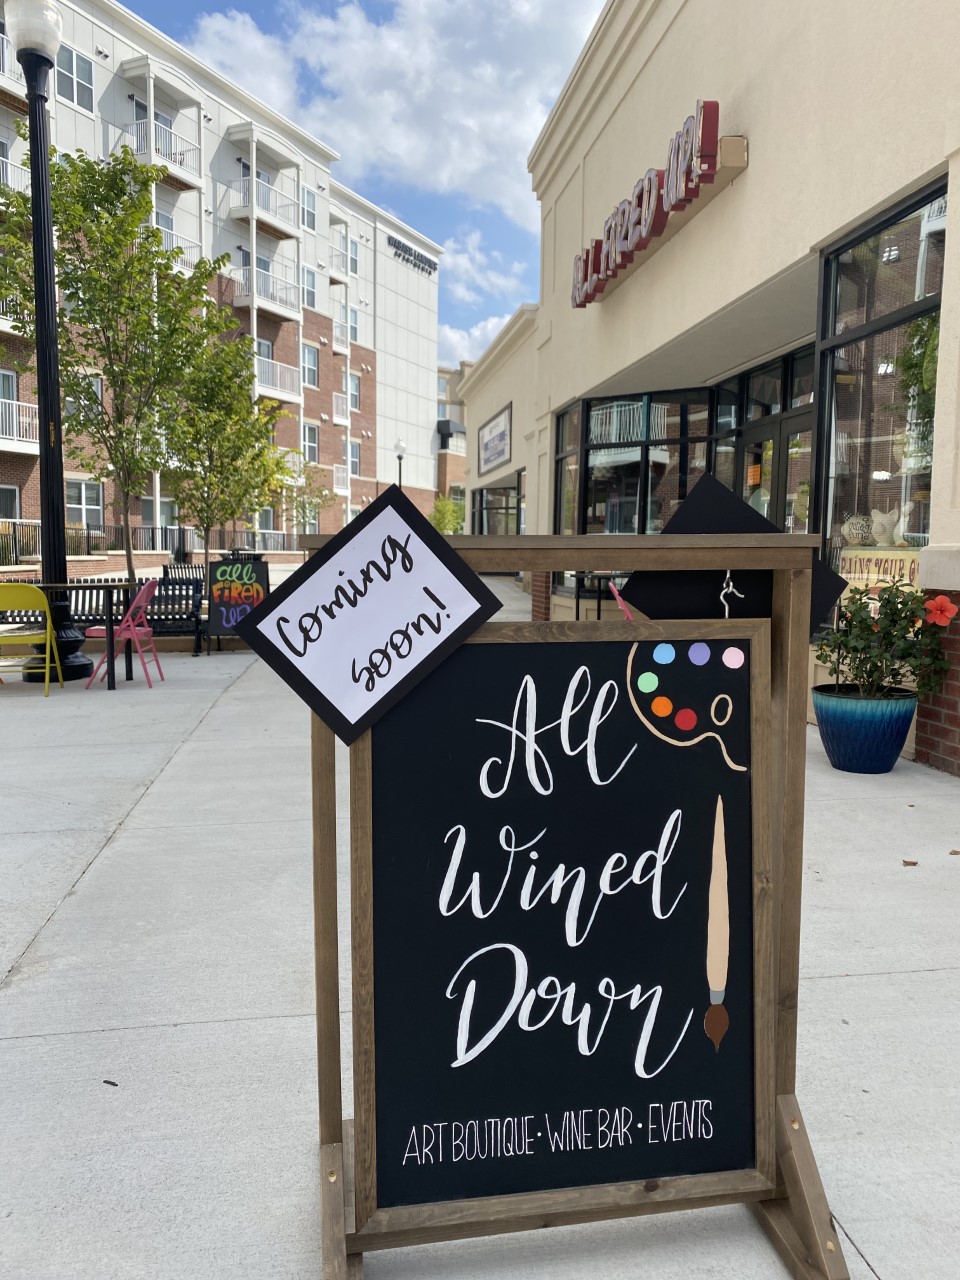 ALL FIRED UP!
WABASH LANDING
APARTMENTS
all
FiRED
UP
Coming
soon!
All
Wined
Down
ART BOUTIQUE · WINE BAR · EVENTS
PAINT YOUR O